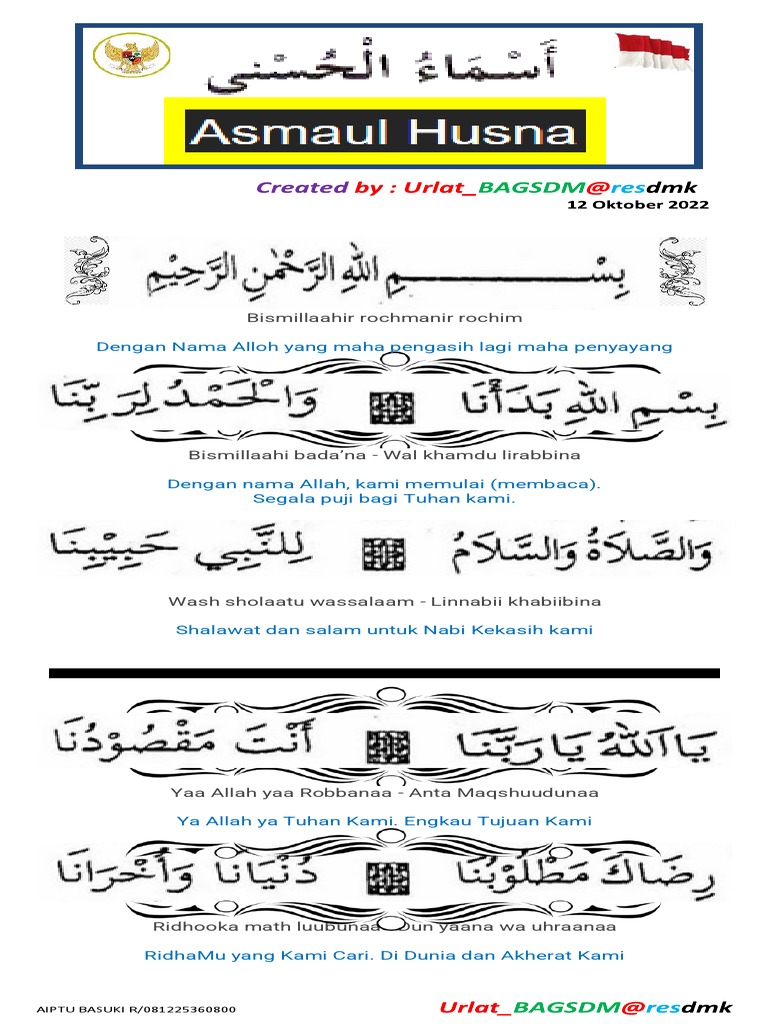 أَسْمَاءُ الْحُسْنٰى
Asmaul Husna
Created by : Urlat_BAGSDM@resdmk
12 Oktober 2022
بِسْـــــــــــمِ اللهِ الرَّحْمٰنِ الرَّحِيْمِ
Bismillaahir rochmanir rochim
Dengan Nama Alloh yang maha pengasih lagi maha penyayang
بِسْمِ اللهِ بَدَأْنَا وَالْحَمْدُ لِرَبِّنَا
Bismillaahi bada’na - Wal khamdu lirabbina
Dengan nama Allah, kami memulai (membaca).
Segala puji bagi Tuhan kami.
وَالصَّلَاةُ وَالسَّلَامُ لِلنَّبِي حَبِيْبِنَا
Wash sholaatu wassalaam - Linnabii khabiibina
Shalawat dan salam untuk Nabi Kekasih kami
يَا اَللهُ يَا رَبَّنَا أَنْتَ مَقْصُوْدُنَا
Yaa Allah yaa Robbanaa - Anta Maqshuudunaa
Ya Allah ya Tuhan Kami. Engkau Tujuan Kami
رِضَاكَ مَطْلُوْبُنَا دُنْيَانَا وَأُخْرَانَا
Ridhooka math luubunaa - Dun yaana wa uhraanaa
RidhaMu yang Kami Cari. Di Dunia dan Akherat Kami
AIPTU BASUKI R/081225360800
Urlat_BAGSDM@resdmk